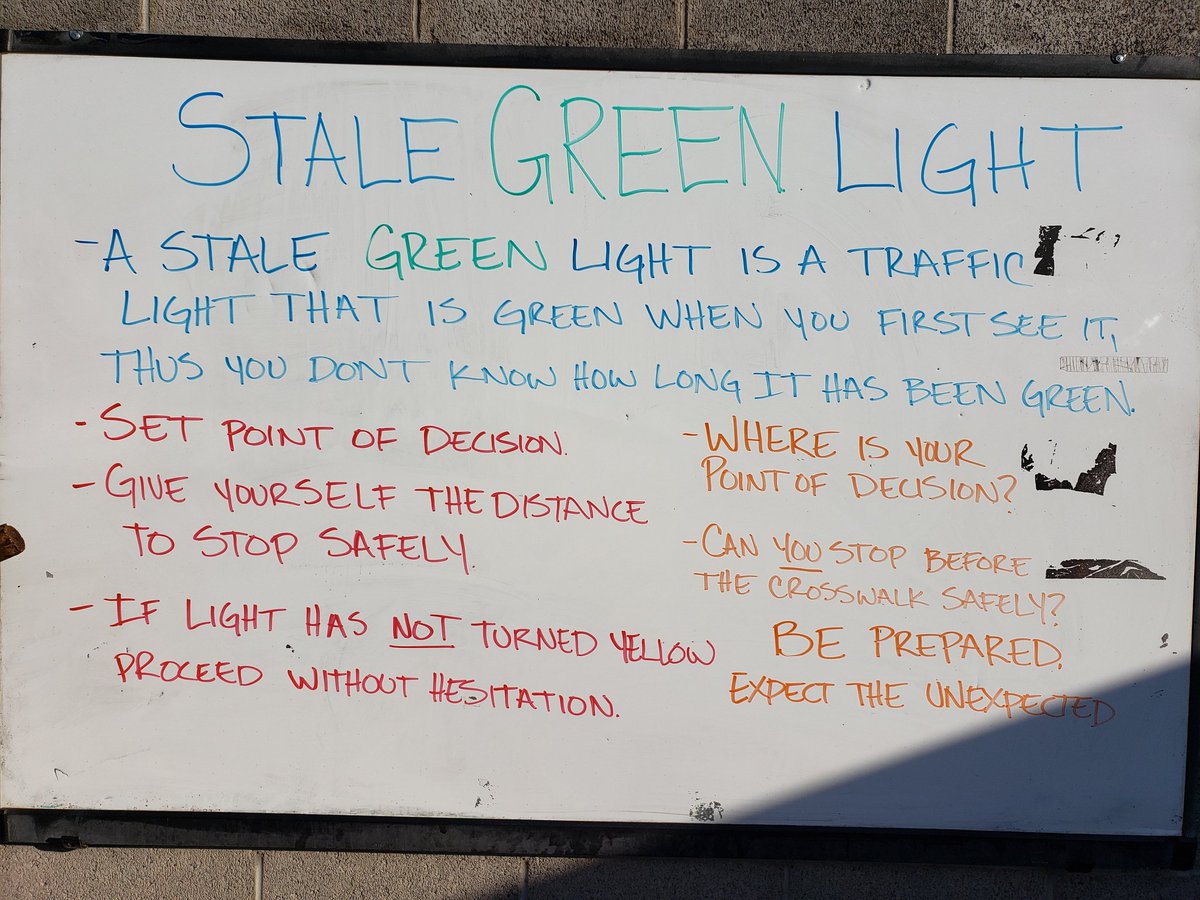 STALE GREEN LIGHT
-A STALE GREEN LIGHT IS A TRAFFIC
LIGHT THAT IS GREEN WHEN YOU FIRST SEE IT,
THUS YOU DONT KNOW HOW LONG IT HAS BEEN GREEN.
-SET POINT OF DECISION.
-GIVE YOURSELF THE DISTANCE
TO STOP SAFELY.
-IF LIGHT HAS NOT TURNED YELLOW
PROCEED WITHOUT HESITATION.
-WHERE IS YOUR
POINT OF DECISION?
-CAN YOU STOP BEFORE
THE CROSSWALK SAFELY?
BE PREPARED.
EXPECT THE UNEXPECTED